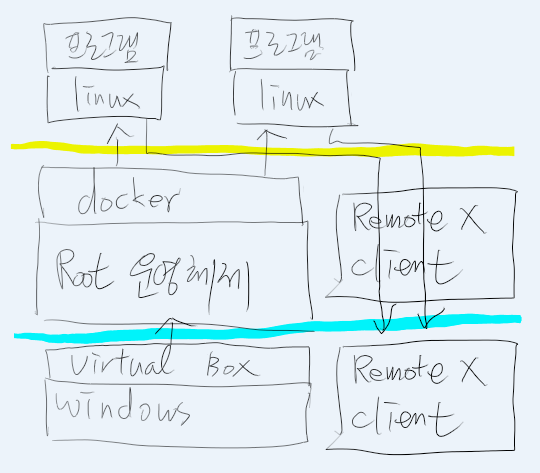 프로그램
linux
프로그램
linux
docker
Root 운영체제
Remote X
client
Virtual Box
windows
Remote X
client